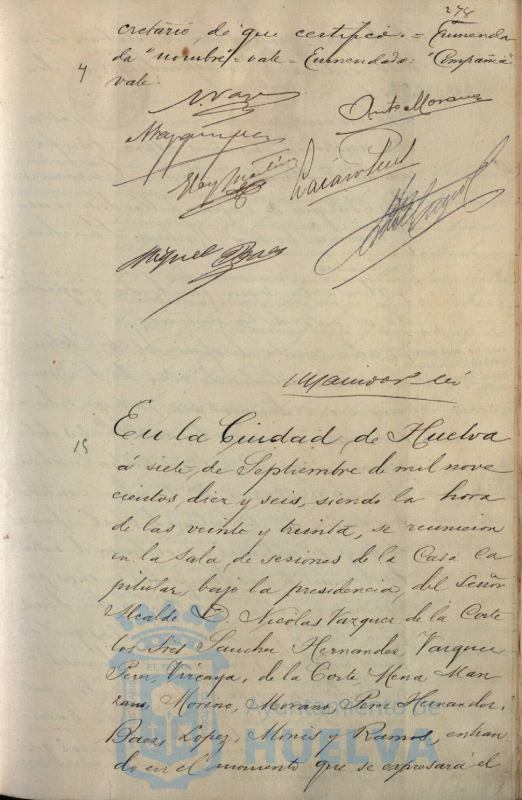 278
cretario de que certifico. = Enmenda
da "nombre" = vale = Enmendado = "Compañía"
vale.
4
N. Vazq
Antº Morano
Eloy Martin
Miguel Baez
En la Ciudad de Huelva
15
á siete de Septiembre de mil nove
cientos diez y seis, siendo la hora
de las veinte y treinta, se reunieron
en la Sala de sesiones de la Casa Ca
pitular bajo la presidencia del Señor
Alcalde D. Nicolás Vazquez de la Corte
los Sres Sanchez Hernandez, Vazquez
Perez, Vizcaya, de la Corte Mena, Man
zano, Moreno, Morano, Pons Hernandez,
Baez, Lopez, Monis y Ramos, entran
do en el momento que se expresará el
Ayuntamiento de
HUELVA